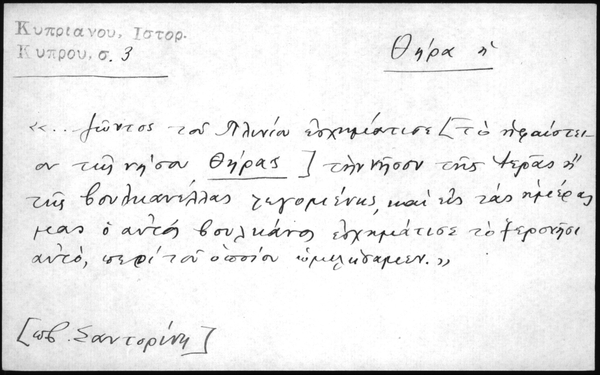 Κυπριανου, Ιστορ.
Κυπρου, σ. 3
Θήρα ἡ
«... ζῶντος τοῦ Πλινίου ἐσχημάτισε [τὸ ἡφαίστει-
ον τῆς νήσου Θήρας] τὴν νῆσον τῆς Ἱερᾶς ἢ
τῆς βουλκανέλλας λεγομένης, καὶ εἰς τὰς ἡμέρας
μας ὁ αὐτὸς βουλκάνος ἐσχημάτισε τὸ ξερονῆσι
αὐτό, περὶ τοῦ ὁποίου ὡμιλήσαμεν.»
[πβ. Σαντορίνη]